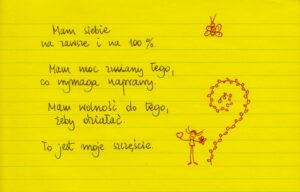 Mam siebie
na zawsze i na 100 %.
Mam moc zmiany tego,
co wymaga naprawy.
Mam wolność do tego,
żeby działać.
To jest moje szczęście.